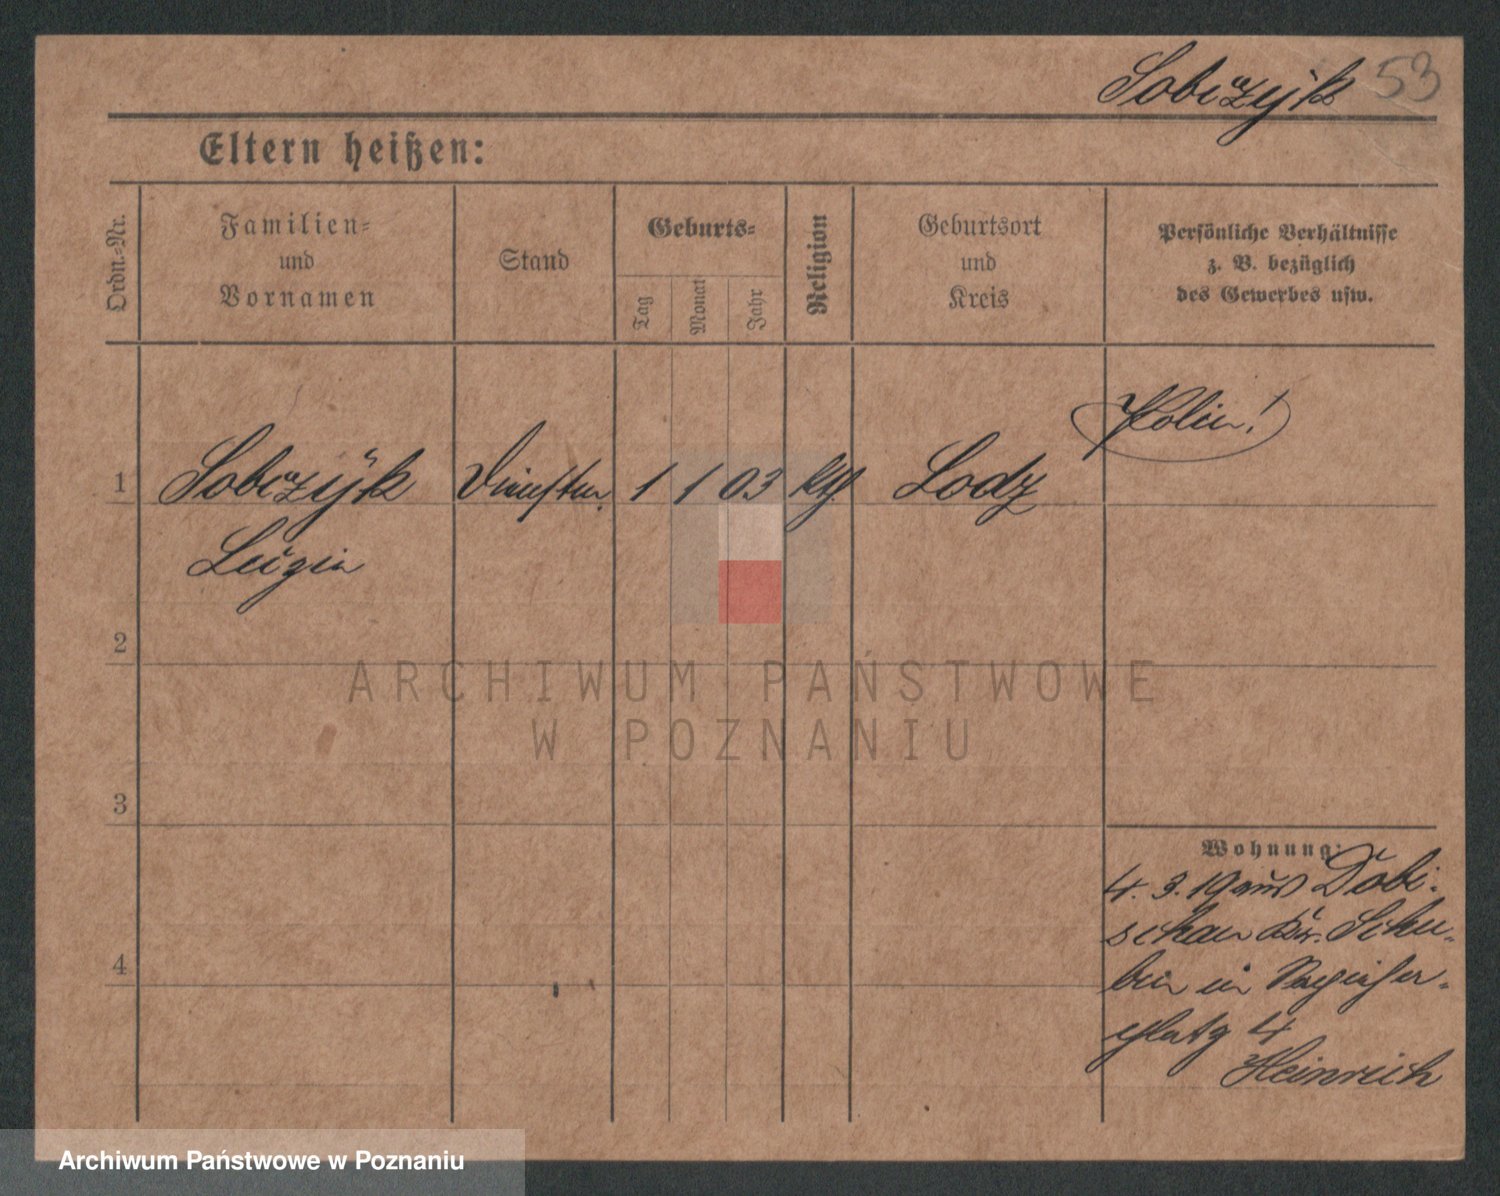 Sobczÿk 53
Eltern heißen:
Ordn.-Nr.
Familien-
und
Vornamen
Stand
Geburts-
Tag
Monat
Jahr
Religion
Geburtsort
und
Kreis
Persönliche Verhältnisse
z. B. bezüglich
des Gewerbes usw.
Polin!
1 Sobczÿk 1 1 03 kth Lodz
2
3
4
Wohnung:
4. 3. 19 aus Dobi-
schau Kr. Schu-
bin in
platz 4
Heinrich
ARCHIWUM PAŃSTWOWE
W POZNANIU
Archiwum Państwowe w Poznaniu